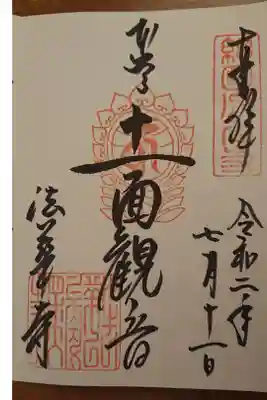 奉拝
令和二年
七月十一日
本尊
十一面觀音
法華寺